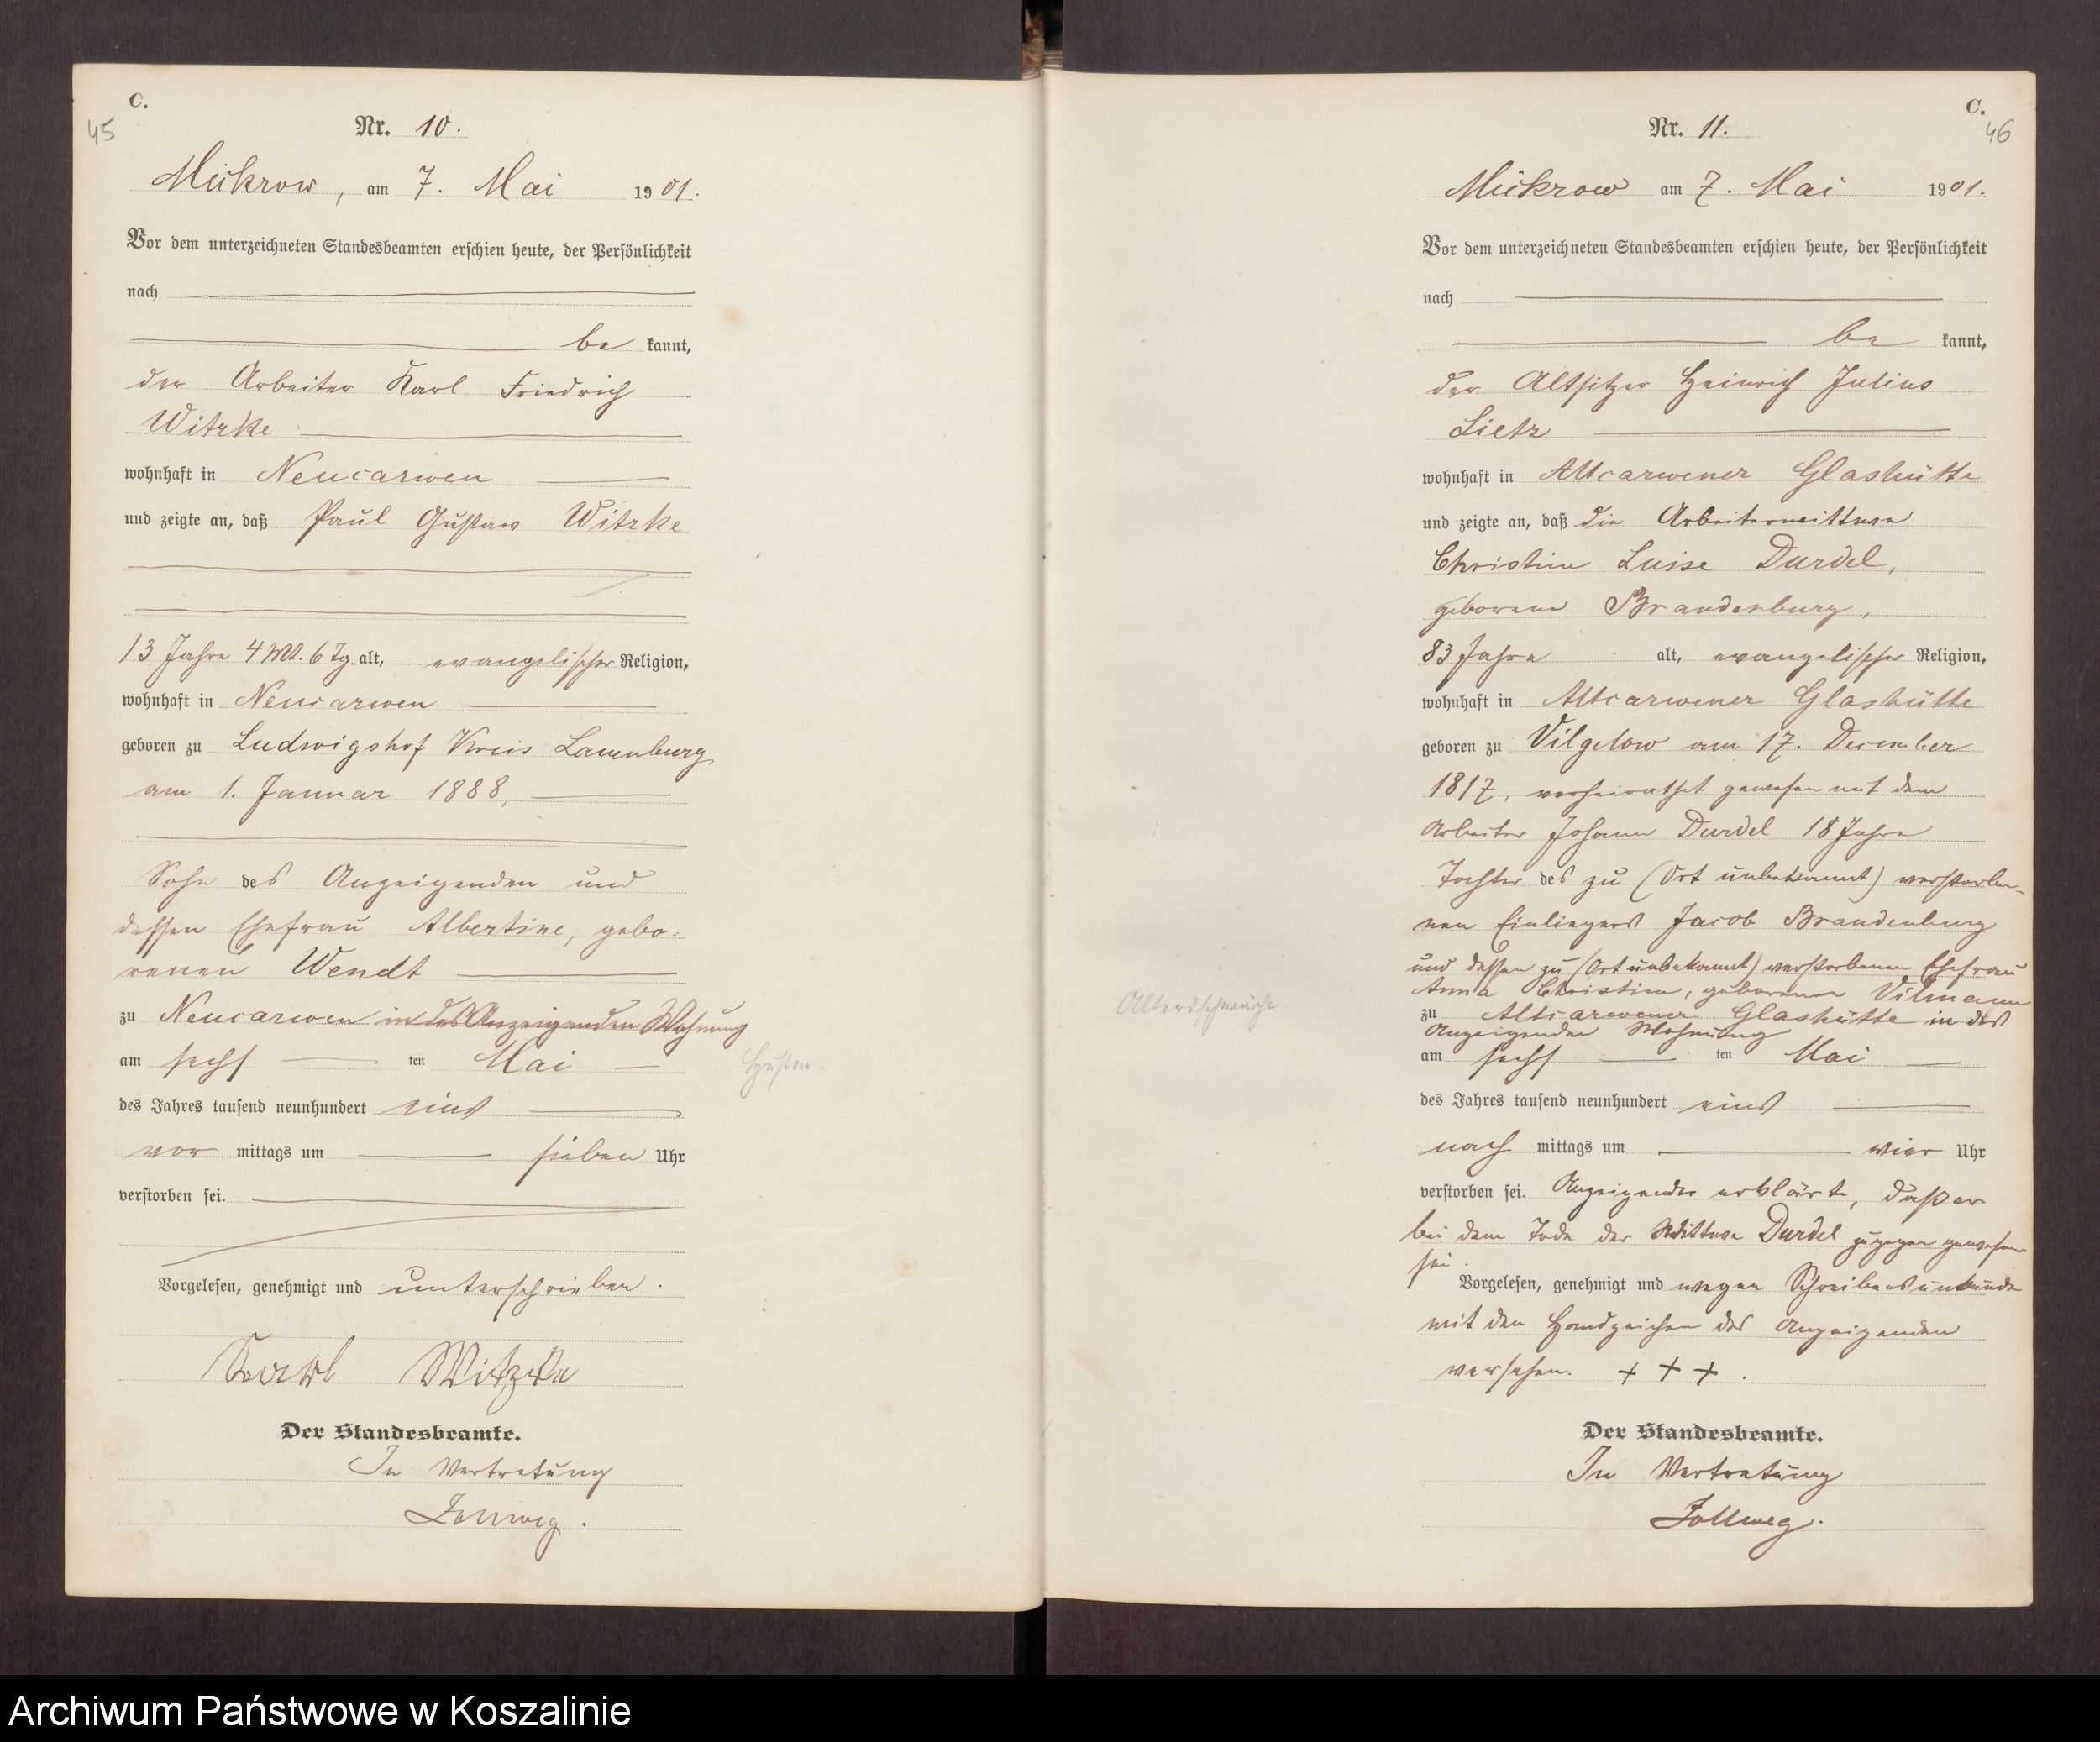 C.
45
Nr. 10.
Mickrow, am 7. Mai 1901.
Vor dem unterzeichneten Standesbeamten erschien heute, der Persönlichkeit
nach
be kannt,
der Arbeiter Karl Friedrich
Witzke
wohnhaft in Neucarwen
und zeigte an, daß Paul Gustav Witzke
13 Jahre 4 Mt. 6 Tg. alt, evangelischer Religion,
wohnhaft in Neucarwen
geboren zu Ludwigshof Kreis Lauenburg
am 1. Januar 1888,
Sohn des Anzeigenden und
dessen Ehefrau Albertine, gebo-
renen Wendt
zu Neucarwen in des Anzeigenden Wohnung
am sechs ten Mai
des Jahres tausend neunhundert eins
vor mittags um sieben Uhr
verstorben sei.
Vorgelesen, genehmigt und unterschrieben.
Karl Witzke
Der Standesbeamte.
In Vertretung
Zollweg.
Husten.
C.
46
Nr. 11.
Mickrow am 7. Mai 1901.
Vor dem unterzeichneten Standesbeamten erschien heute, der Persönlichkeit
nach
be kannt,
der Altsitzer Heinrich Julius
Lietz
wohnhaft in Altcarwener Glashütte
und zeigte an, daß die Arbeiterwittwe
Christine Luise Durdel,
geborene Brandenburg,
83 Jahre alt, evangelischer Religion,
wohnhaft in Altcarwener Glashütte
geboren zu Vilgelow am 17. December
1817, verheirathet gewesen mit dem
Arbeiter Johann Durdel 18 Jahre
Tochter des zu (Ort unbekannt) verstorbe-
nen Einliegers Jacob Brandenburg
und dessen zu (Ort unbekannt) verstorbenen Ehefrau
Anna Christine, geborenen Vilmann
zu Altcarwener Glashütte in des
Anzeigenden Wohnung
am sechs ten Mai
des Jahres tausend neunhundert eins
nach mittags um vier Uhr
verstorben sei. Anzeigender erklärte, daß er
bei dem Tode der Wittwe Durdel zugegen gewesen
sei.
Vorgelesen, genehmigt und wegen Schreibensunkunde
mit den Handzeichen des Anzeigenden
versehen. + + +.
Der Standesbeamte.
In Vertretung
Zollweg.
Altersschwäche
Archiwum Państwowe w Koszalinie